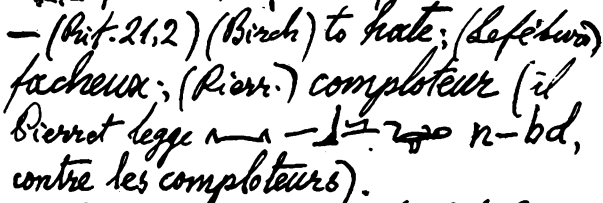 — (Rit. 21,2) (Birch) to hate; (Lefébure)
facheux; (Pierr.) comploteur (il
Pierret legge n-bd,
contre les comploteurs).